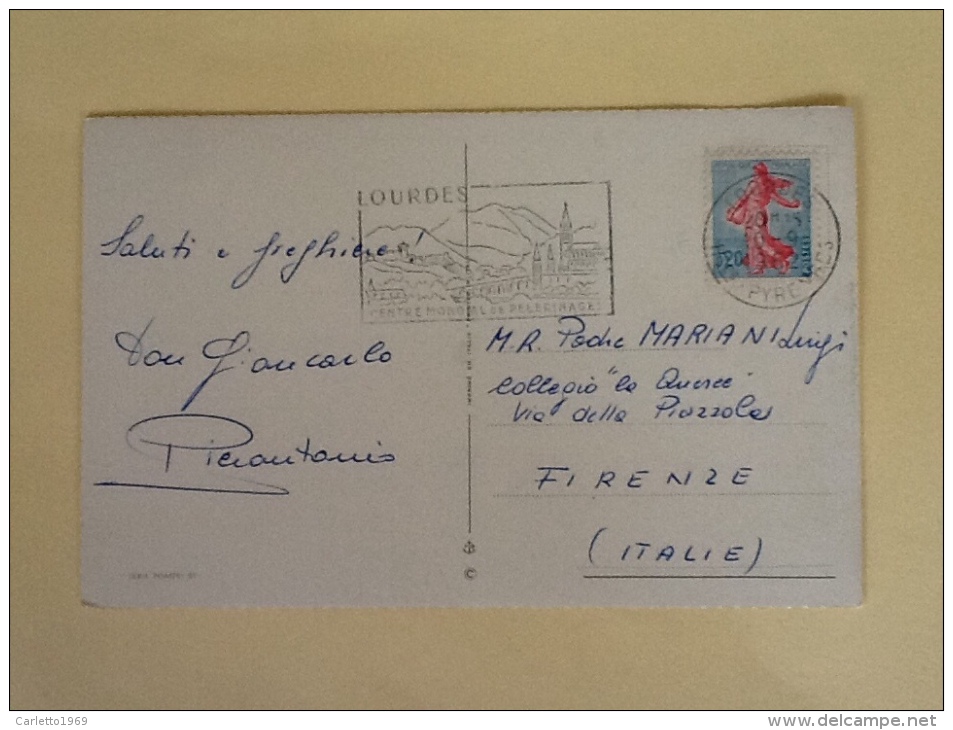 LOURDES
CENTRE MONDIAL DE PELERINAGES
Saluti e preghiere!
Don Giancarlo
Pierantonio
M.R. Padre MARIANI Luigi
Collegio "la Querce"
Via della Piazzola
FIRENZE
(ITALIE)
©
Carletto1969
www.delcampe.net